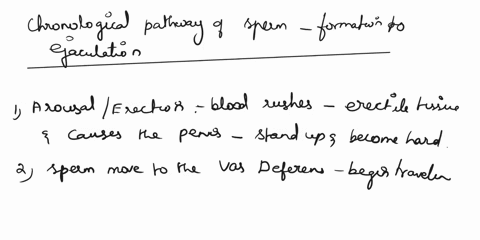 Chronological pathway of sperm - formation to
ejaculation
1) Arousal/Erection :- blood rushes - erectile tissue
& causes the penis - stand up & become hard.
2) sperm move to the Vas Deferens - begin